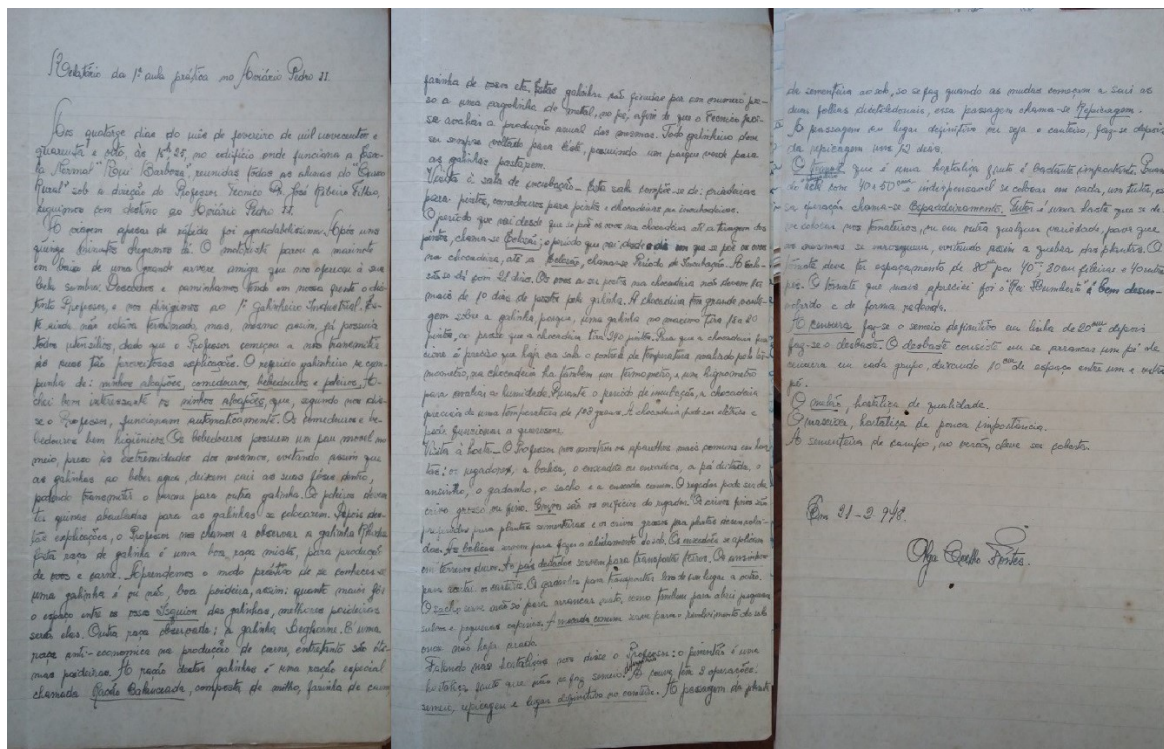 Relatório da 1ª aula prática no Aviário Pedro II.
Aos quatorze dias do mês de fevereiro de mil novecentos e
quarenta e oito, às 15h,25, no edifício onde funciona a Esco-
la Normal "Rui Barbosa", reunidas todas as alunas do "Curso
Rural" sob a direção do Professor Tecnico D. José Ribeiro Filho,
seguimos com destino ao Aviário Pedro II.
A viagem apesar de rápida foi agradabilíssima. Após uns
quinze minutos chegamos lá. O motorista parou a marinete
em baixo de uma grande arvore amiga que nos ofereceu a sua
bela sombra. Descemos e caminhamos tendo em nossa frente o dis-
tinto Professor, e nos dirigimos ao 1º Galinheiro Industrial. Es-
te ainda não estava terminado, mas, mesmo assim, já possuia
todos utensilios, dado que o Professor começou a nos transmitir
as suas tão proveitosas explicação. O referido galinheiro se com-
punha de: ninhos alçapões, comedouros, bebedouros e poleiros. A-
chei bem interessante os ninhos alçapões, que, segundo nos dis-
se o Professor, funcionam automaticamente. Os comedouros e be-
bedouros bem higiênicos. Os bebedouros possuem um pau movel no
meio, preso às extremidades dos mesmos, evitando assim que
as galinhas ao beber agua, deixem cair as suas fézes dentro,
podendo transmitir o germe para outra galinha. Os poleiros devem
ter quinas abauladas para as galinhas se colocarem. Depois des-
tas explicações, o Professor nos chamou a observar a galinha Rhodia
Esta raça de galinha é uma boa raça mixta, para produção
de ovos e carne. Aprendemos o modo prático de se conhecer se
uma galinha é ou não, boa poedeira, assim: quanto maior for
o espaço entre os ossos Isquion das galinhas, melhores poedeiras
serão elas. Outra raça observada: a galinha Leghorne. É uma
raça anti-economica na produção de carne, entretanto são óti-
mas poedeiras. A ração destas galinhas é uma ração especial
chamada Ração Balanceada, composta de milho, farinha de carne
farinha de ossos etc. Estas galinhas são prezas por um numero pre-
so a uma argolinha de metal, no pé, afim de que o Tecnico pos-
sa avaliar a produção anual das mesmas. Todo galinheiro deve
ser sempre voltado para léste, possuindo um parque verde para
as galinhas pastarem.
Visita à sala de incubação - Esta sala compõe-se de: criadeiras
para pintos, comedouros para pintos e chocadeiras ou incubadoras.
O período que vai desde que se põe os ovos na chocadeira até a tiragem dos
pintos, chama-se Eclosão; o período que vai desde o dia em que se põe os ovos
na chocadeira, até a Eclosão, chama-se Periodo de Incubação. A eclo-
são se dá com 21 dias. Os ovos a ser postos na chocadeira não devem ter
mais de 10 dias de postos pela galinha. A chocadeira tem grande vanta-
gem sobre a galinha, porque, uma galinha no maximo tira 18 a 20
pintos, ao passo que a chocadeira tira 390 pintos. Para que a chocadeira fun-
cione é preciso que haja na sala o controle da temperatura analisado pelo ter-
mometro, na chocadeira ha tambem um termometro, e um higrometro
para analisar a humidade. Durante o período de incubação, a chocadeira
precisa de uma temperatura de 103 graus. A chocadeira pode ser elétrica e
pode funcionar a querosene.
Visita à horta - O Professor nos mostrou os aparelhos mais comuns em hor-
tas: os regadores, a baliza, o enxadete ou enxadeca, a pá ditada, o
ancinho, o gadanho, o sacho e a enxada comum. O regador pode ser de
crivo grosso ou fino. Crivos são os orificios do regador. Os crivos finos são
preferidos para plantas sementeiras e os crivos grossos para plantas desenvolvi-
das. As balizas servem para fazer o alinhamento do sólo. Os enxadões se aplicam
em terrenos duros. As pás ditadas servem para transportar terras. Os ancinhos
para acertar os canteiros. Os gadanhos para transportar terra de um lugar a outro.
O sacho serve não só para arrancar mato, como tambem para abrir pequenos
sulcos e pequenas capinas. A enxada comum serve para o revolvimento do solo
onde não haja arado.
Falando nas hortaliças nos disse o Professor: o pimentão é uma
hortaliça fruto que não se faz semeio. A couve tem 3 operações:
semeio, repicagem e lugar definitivo no canteiro. A passagem da planta
da sementeira ao sol, so se faz quando as mudas começam a sair as
duas folhas dicotiledonais, essa passagem chama-se Repicagem.
A passagem ao lugar definitivo ou seja o canteiro, faz-se depois
da repicagem uns 12 dias.
O tomate que é uma hortaliça fruto é bastante importante. Quan-
do está com 40 a 50 cm é indispensavel se colocar em cada, um tutor, es-
sa operação chama-se Espardeiramento. Tutor é uma haste que se de-
ve colocar nos tomateiros, ou em outra qualquer variedade, para que
os mesmos se envergem, evitando assim a quebra das plantas. O
tomate deve ter espaçamento de 80 cm por 40 cm - 80 em fileiras e 40 entre
pés. O tomate que mais apreciei foi o "Rei Humberto" é bem desen-
volvido e de forma redonda.
A cenoura faz-se o semeio definitivo em linha de 20 cm e depois
faz-se o desbaste. O desbaste consiste em se arrancar um pé de
cenoura em cada grupo, deixando 10 cm de espaço entre um e outro
pé.
O melão, hortaliça de qualidade.
O maxixe, hortaliça de pouca importancia.
A sementeira de campo, no verão, deve ser coberta.
21-2-948.
Olga Coelho Fontes.